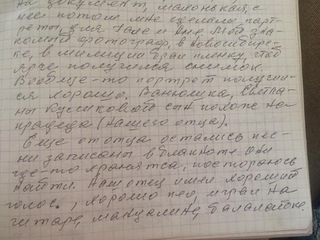 на документ, маленькая, с
нее потом мне сделали порт-
рет, для Нане и
комый фотограф, в Новосибирс-
ке, в
ярче получился снимок.
Вообще-то портрет получил-
ся хорошо. Ванюшка, Светла-
ны Кусиковой сын похож на
прадеда (нашего отца).
Еще от отца остались пес-
ни записаны в блокноте. Они
где-то хранятся, постараюсь
найти. Наш отец имел хороший
голос, хорошо пел, играл на
гитаре, мандолине, балалайке,